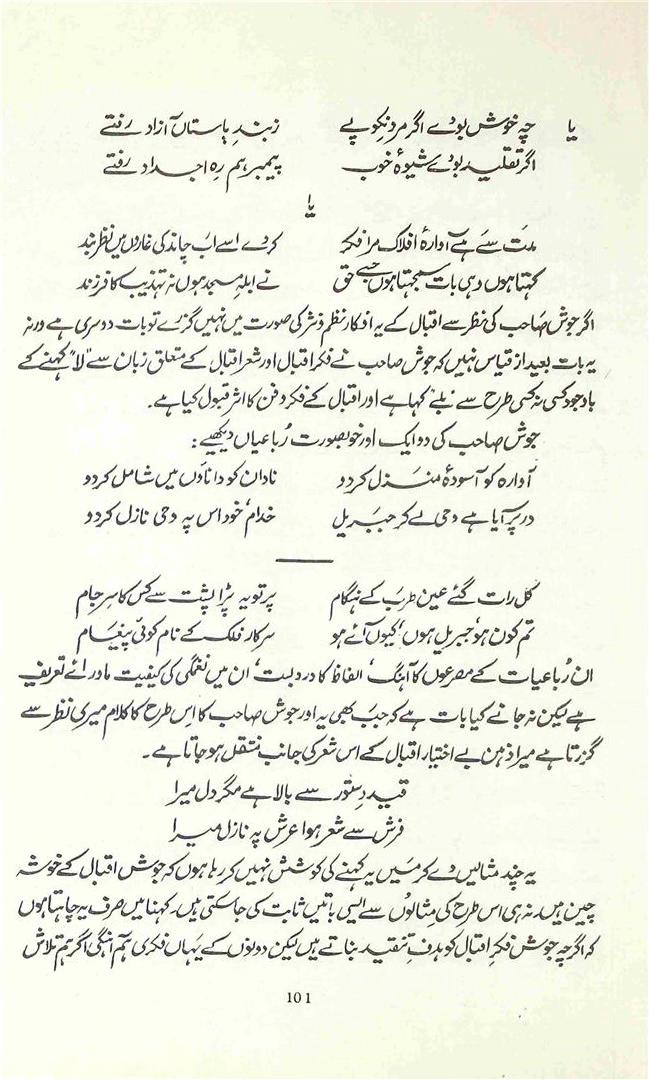 یا چہ خوش بودے اگر مرد نکوپے زبندِ باستاں آزاد رفتے
اگر تقلید بودے شیوۂ خوب پیمبر ہم رہِ اجداد رفتے
یا
مدت سے ہے آوارۂ افلاک مرا فکر کردے اسے اب چاند کی غاروں میں نظر بند
کہتا ہوں وہی بات سمجھتا ہوں جسے حق نے ابلہِ مسجد ہوں نہ تہذیب کا فرزند
اگر جوش صاحب کی نظر سے اقبال کے یہ افکار نظم و نثر کی صورت میں نہیں گزرے تو بات دوسری ہے ورنہ
یہ بات بعید از قیاس نہیں کہ جوش صاحب نے فکرِ اقبال اور شعرِ اقبال کے متعلق زبان سے "لا" کہنے کے
باوجود کسی نہ کسی طرح سے "بلے" کہا ہے اور اقبال کے فکر و فن کا اثر قبول کیا ہے۔
جوش صاحب کی دو ایک اور خوبصورت رُباعیاں دیکھیے:
آوارہ کو آسودۂ منزل کردو نادان کو داناؤں میں شامل کردو
در پر آیا ہے وحی لے کر جبریل خدام، خود اس پہ وحی نازل کردو
کل رات گئے عین طرب کے ہنگام پرتو یہ پڑا پشت سے کس کا سرِ جام
تم کون ہو، جبریل ہوں، کیوں آئے ہو سرکار فلک کے نام کوئی پیغام
ان رُباعیات کے مصرعوں کا آہنگ، الفاظ کا دروبست، ان میں نغمگی کی کیفیت ماورائے تعریف
ہے لیکن نہ جانے کیا بات ہے کہ جب بھی یہ اور جوش صاحب کا اس طرح کا کلام میری نظر سے
گزرتا ہے میرا ذہن بے اختیار اقبال کے اس شعر کی جانب منتقل ہو جاتا ہے۔
قیدِ دستور سے بالا ہے مگر دل میرا
فرش سے شعر ہوا عرش پہ نازل میرا
یہ چند مثالیں دے کر میں یہ کہنے کی کوشش نہیں کر رہا ہوں کہ جوش اقبال کے خوشہ
چین ہیں۔ نہ ہی اس طرح کی مثالوں سے ایسی باتیں ثابت کی جاسکتی ہیں۔ کہنا میں صرف یہ چاہتا ہوں
کہ اگرچہ جوش فکرِ اقبال کو ہدفِ تنقید بناتے ہیں لیکن دونوں کے یہاں فکری ہم آہنگی اگر ہم تلاش
101